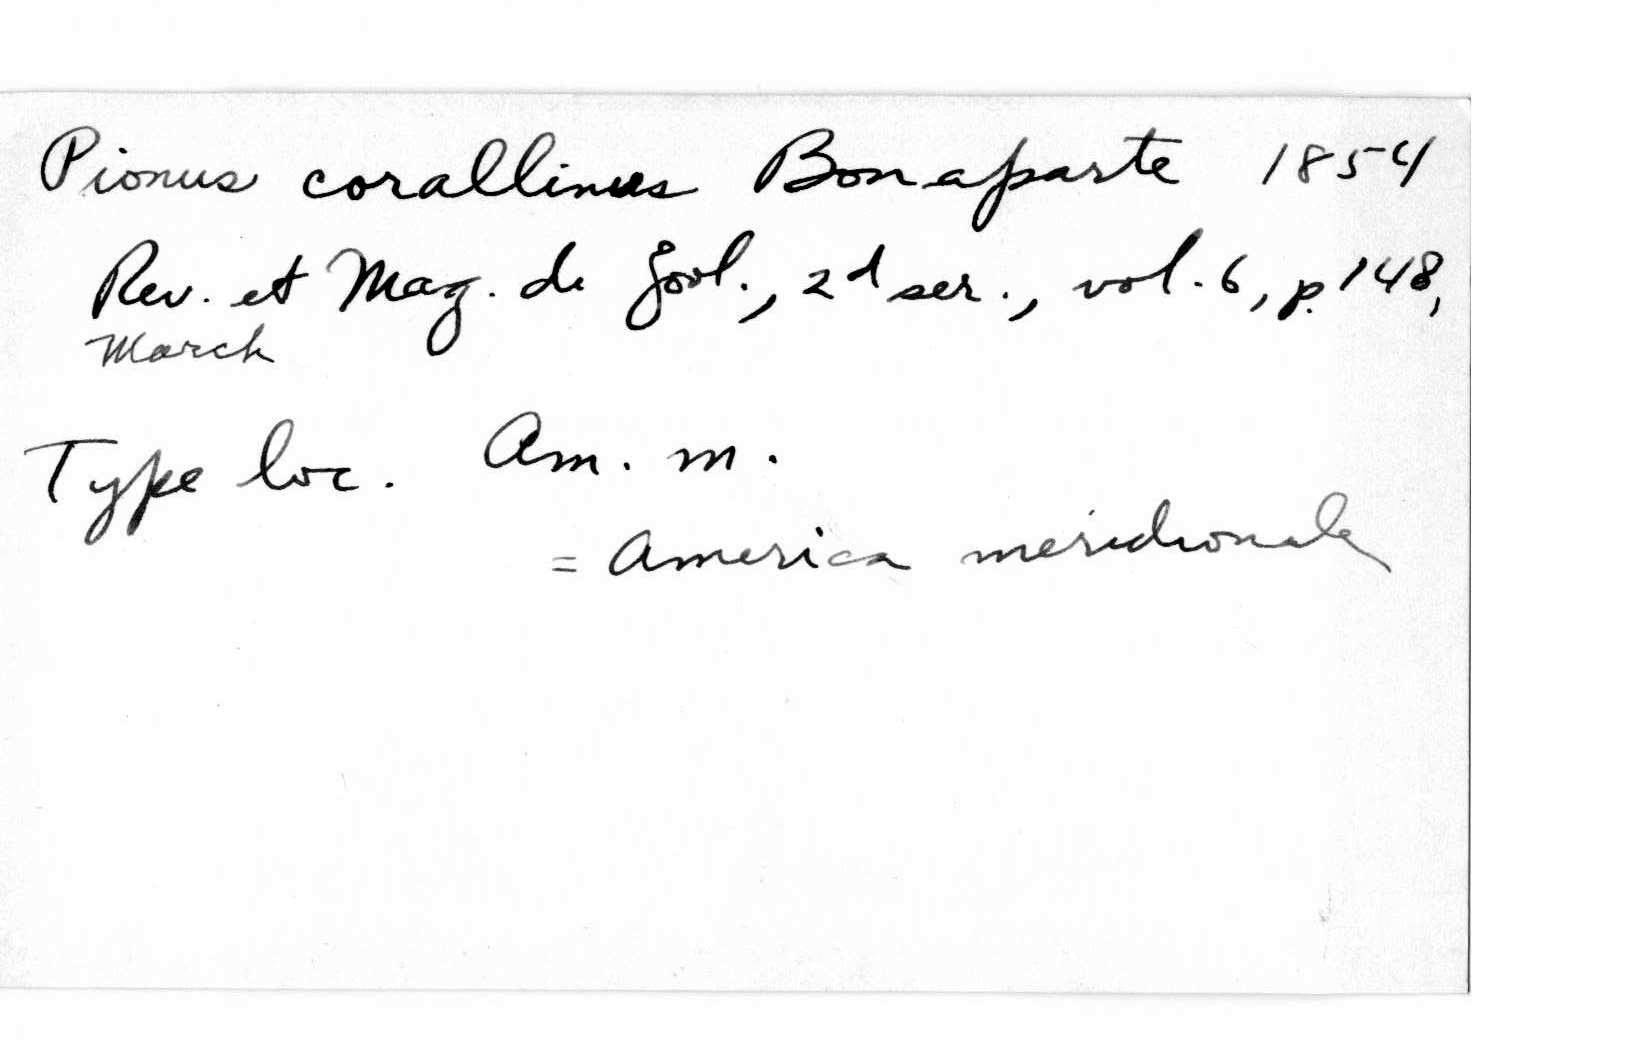 Pionus corallinus Bonaparte 1854
Rev. et Mag. de Zool., 2d ser., vol. 6, p. 148,
March
Type loc. Am. m.
= America meridionale